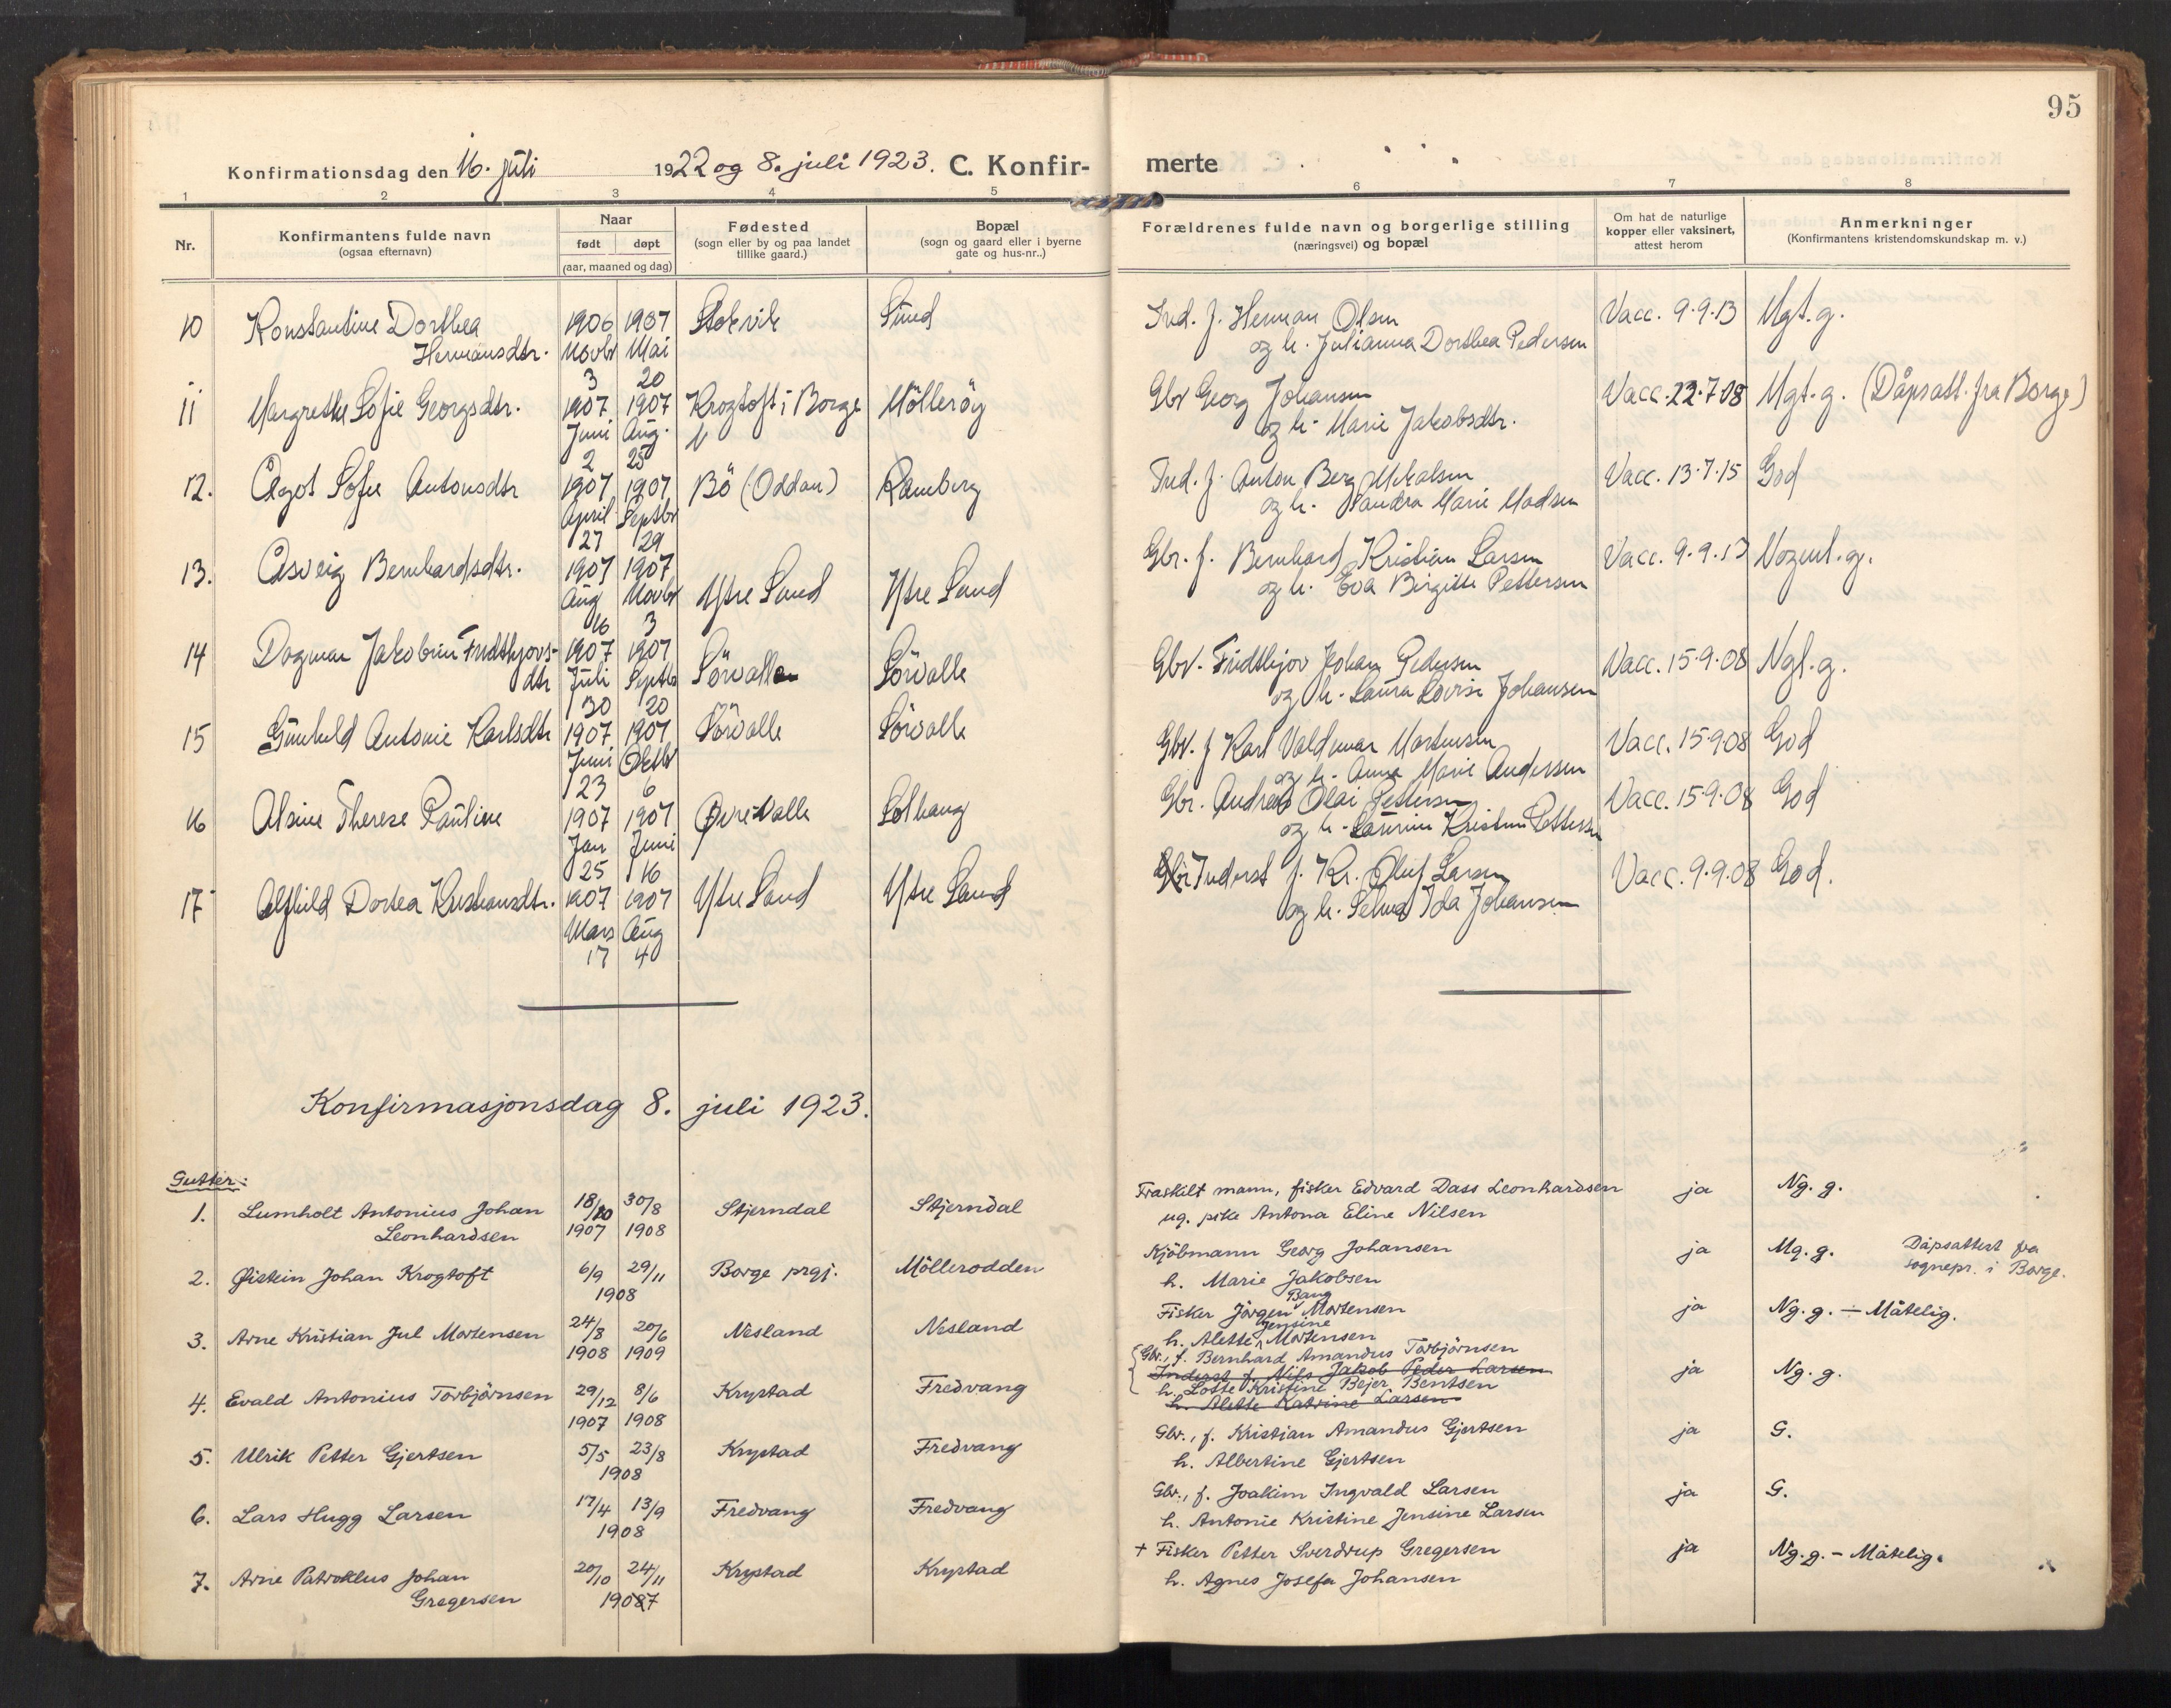 95
Konfirmationsdag den 16. juli 1922 og 8. juli 1923. C. Konfir-
merte
1 2 3 4 5 6 7 8
Nr.
Konfirmantens fulde navn
(ogsaa efternavn)
Naar
født døpt
(aar, maaned og dag)
Fødested
(sogn eller by og paa landet
tillike gaard.)
Bopæl
(sogn og gaard eller i byerne
gate og hus-nr..)
Forældrenes fulde navn og borgerlige stilling
(næringsvei) og bopæl
Om hat de naturlige
kopper eller vaksinert,
attest herom
Anmerkninger
(Konfirmantens kristendomskundskap m. v.)
10 Konstantine Dorthea 1906 1907 Stokvik Sund Ind. f. Herman Olsen Vacc. 9-9-13 Mgt. g.
Hermansdtr. Novbr Mai og h. Julianna Dorthea Pedersen
3 20
11 Margrethe Sofie Georgsdtr. 1907 1907 Krogtoft i Borge Mölleröy Gbr Georg Johansen Vacc. 22-7-08 Mgt. g. (Dåpsatt. fra Borge)
Juni Aug. og h. Marie Jakobsdtr.
2 25
12. Ågot Sofie Antonsdtr 1907 1907 Bö (Oddan) Ramberg Ind. f. Anton Berg Mikalsen Vacc. 13-7-15 God
April Septbr og h. Sandra Marie Madsen
27 29
13. Åsveig Bernhardsdtr. 1907 1907 Ytre Sund Ytre Sund Gbr. f. Bernhard Kristian Larsen Vacc. 9-9-13
Aug Novbr og h. Eva Birgitte Pettersen
16 3
14 Dagmar Jakobine Fridthjovs- 1907 1907 Sörvalle Sörvalle Gbr. Fridthjov Johan Pedersen Vacc. 15-9-08 Ngl. g.
dtr Juli Septbr og h. Laura Lovise Johansen
30 20
15 Gunhild Antonie Karlsdtr 1907 1907 Sörvalle Sörvalle Gbr. f Karl Valdemar Mortensen Vacc. 15-9-08 God
Juni Oktbr og h. Anna Marie Andersen
23 6
16 Alsine Therese Pauline 1907 1907 Øvre Valle Solhaug Gbr. Andreas Olai Pettersen Vacc. 15-9-08 God
Jan Juni og h. Laurine Kristine Pettersen
25 16
17 Alfhild Dortea Kristiansdtr. 1907 1907 Ytre Sund Ytre Sund Gbr Inderst f. Kr. Oluf Larsen Vacc. 9-9-08 God.
Mars Aug og h. Selma Ida Johansen
17 4
Konfirmasjonsdag 8. juli 1923.
Gutter:
1. Lumholt Antonius Johan 18/10 30/8 Stjerndal Stjerndal Fraskilt mann, fisker Edvard Dass Leonhardsen ja Ng. g.
Leonhardsen 1907 1908 ug. pike Antona Eline Nilsen
2. Øistein Johan Krogtoft 6/9 29/11 Borge prgj. Möllerodden Kjöbmann Georg Johansen ja Mg. g. Dåpsattest fra
1908 h. Marie Jakobsen sognepr. i Borge.
3. Arne Kristian Jul Mortensen 24/8 20/6 Nesland Nesland Fisker Jörgen Bang Mortensen ja Ng. g. — Måtelig.
1908 1909 h. Alette Jensine Mortensen
4. Evald Antonius Torbjörnsen 29/12 8/6 Krystad Fredvang Gbr., f. Bernhard Amandus Torbjörnsen ja Ng. g.
Inderst f. Nils Jakob Peder Larsen
1907 1908 h. Lotte Kristine Bejer Bentsen
h. Alette Katrine Larsen
5. Ulrik Petter Gjertsen 5/5 23/8 Krystad Fredvang Gbr., f. Kristian Amandus Gjertsen ja G.
1908 h. Albertine Gjertsen
6. Lars Hugg Larsen 17/4 13/9 Fredvang Fredvang Gbr., f. Joakim Ingvald Larsen ja G.
1908 h. Antonie Kristine Jensine Larsen
7. Arne Patroklus Johan 20/10 24/11 Krystad Krystad + Fisker Petter Sverdrup Gregersen ja Ng. g. - Måtelig.
Gregersen 19087 h. Agnes Josefa Johansen